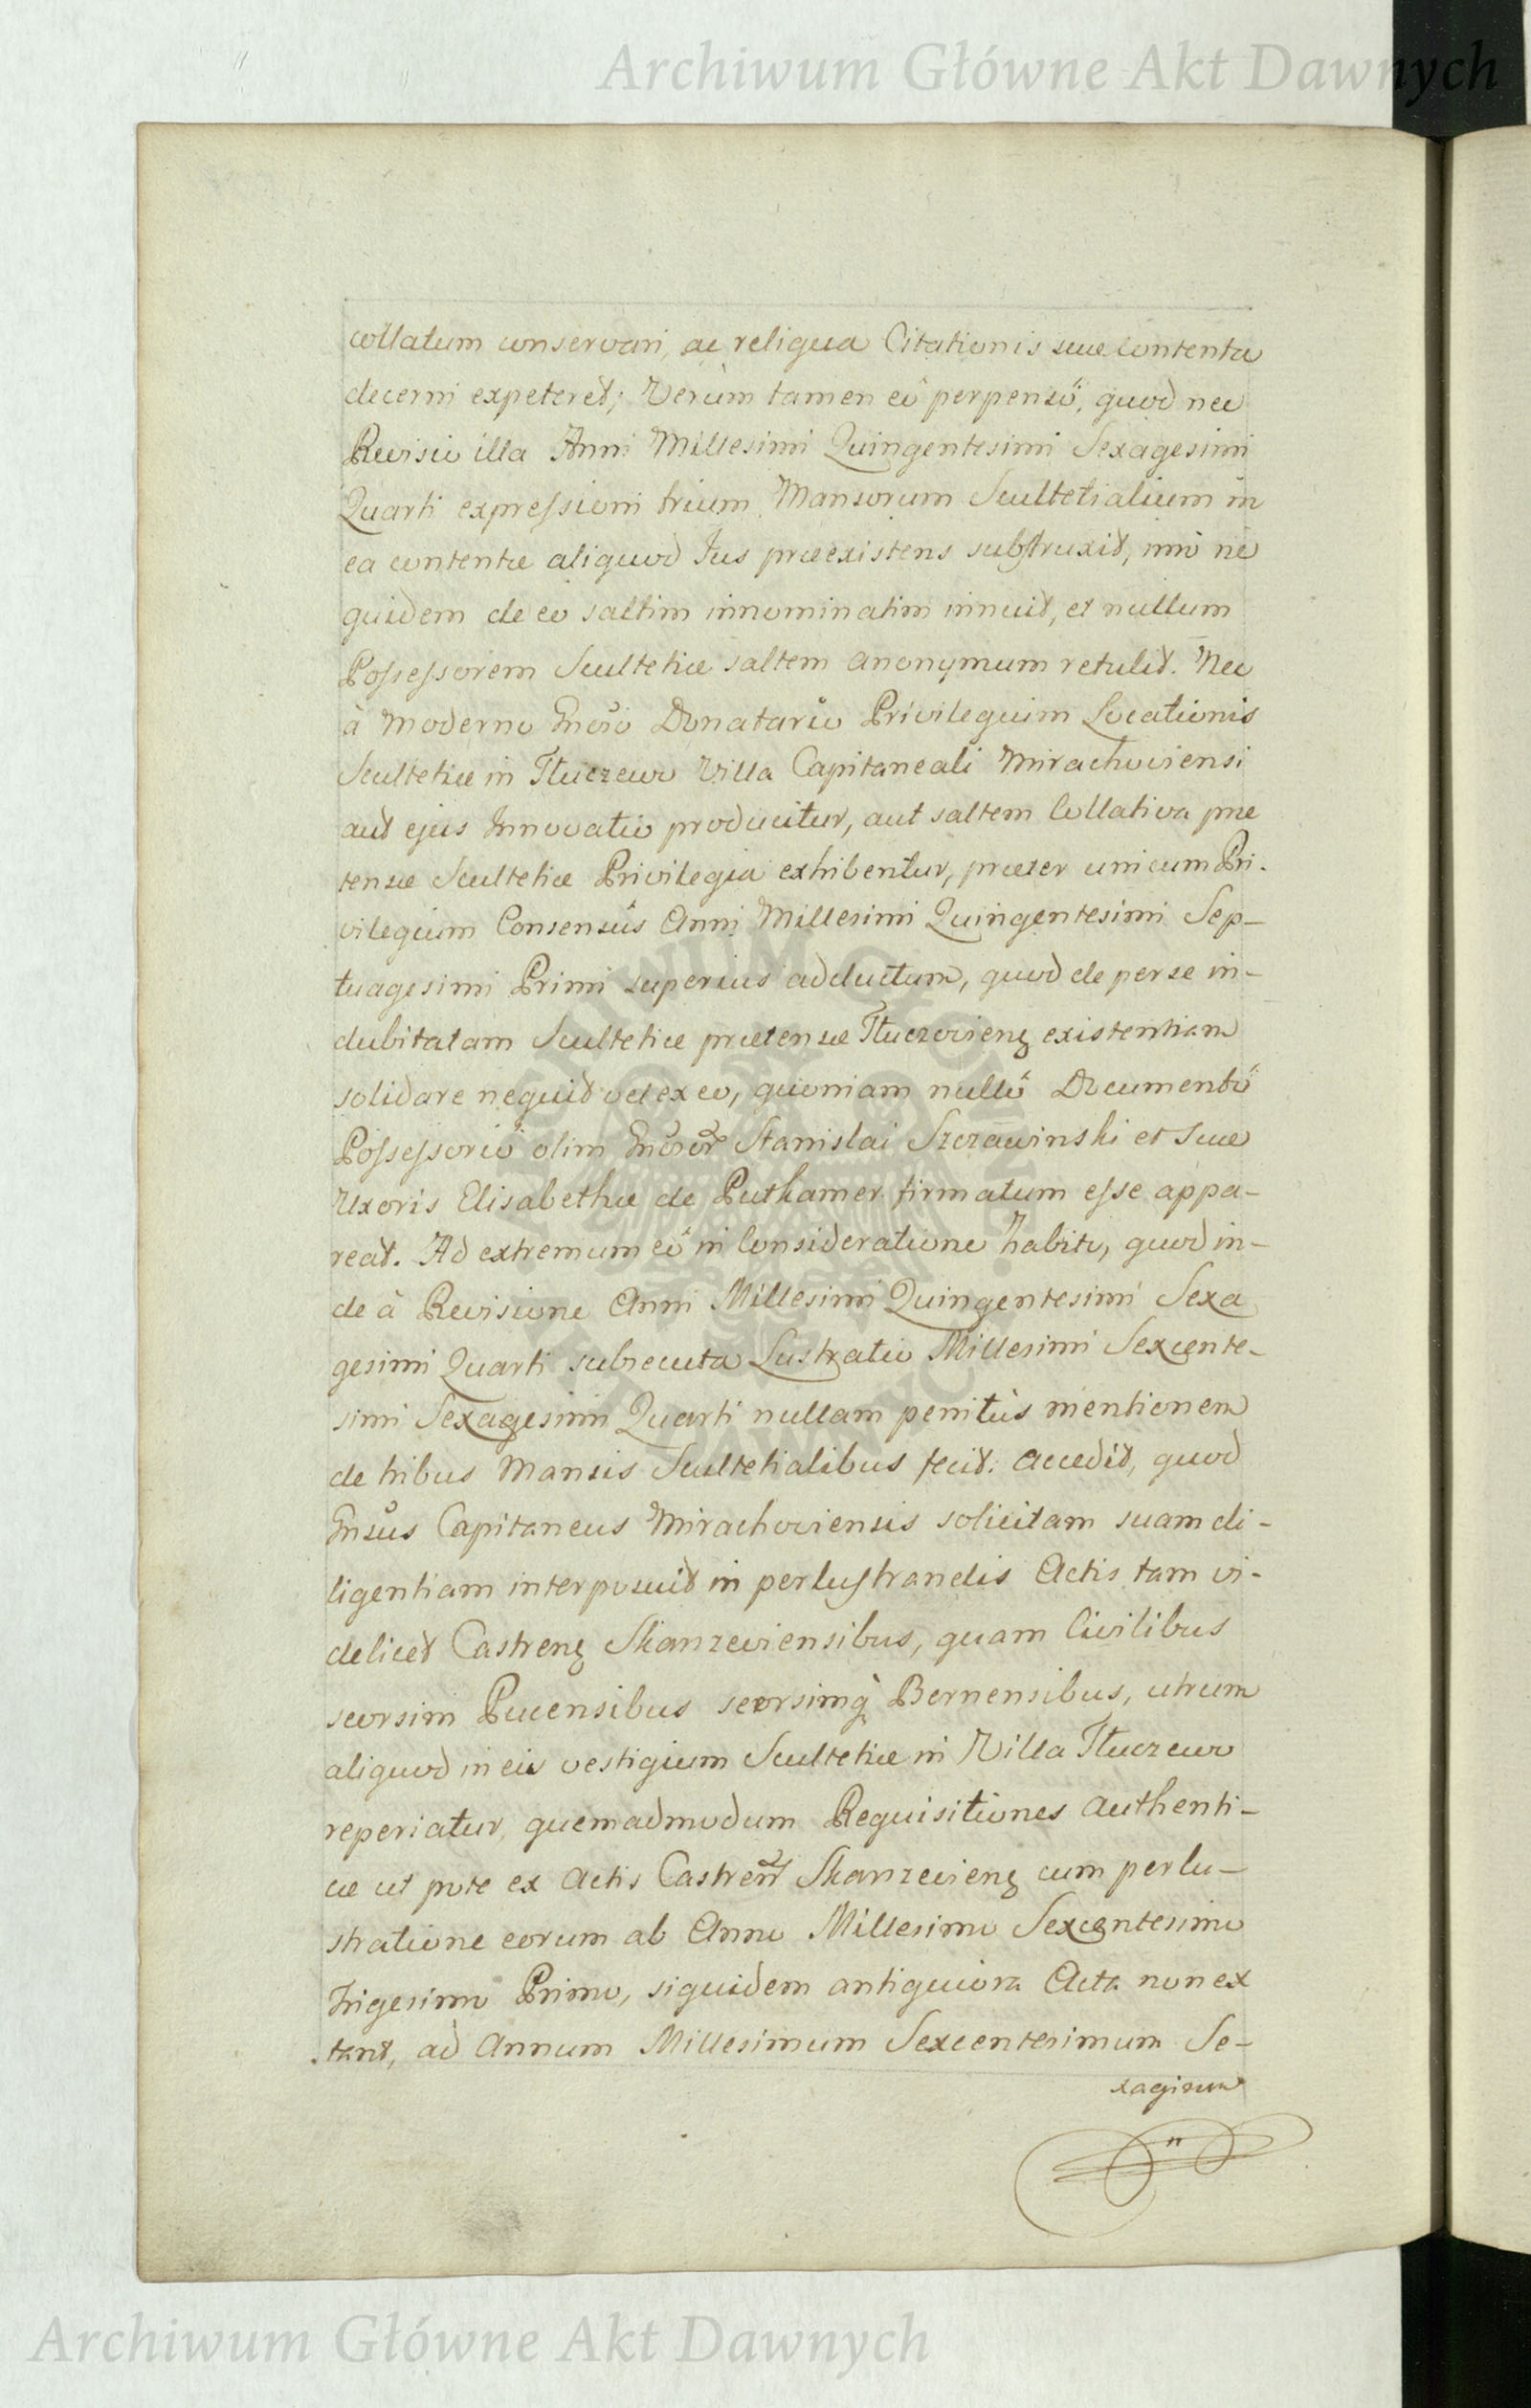 Archiwum Główne Akt Dawnych
collatum conservari, ac reliqua Citationis suæ contenta
decerni expeteret; Verùm tamen eô perpensô, quod nec
Revisio illa Anni Millesimi Quingentesimi Sexagesimi
Quarti expressioni trium Mansorum Scultetialium in
ea contentæ aliquod Jus præexistens substruxit, imò nè
quidem de eo saltim innominatim innuit, et nullum
Possessorem Scultetiæ saltem anonymum retulit. Nec
à Moderno Gnoso Donatario Privilegium Locationis
Scultetiæ in Tłuczewo Villa Capitaneali Mirachoviensi
aut ejus Innovatio producitur, aut saltem Collativa præ
tensæ Scultetiæ Privilegia exhibentur, præter unicum Pri-
vilegium Consensûs Anni Millesimi Quingentesimi Sep-
tuagesimi Primi superius adductum, quod de per se in-
dubitatam Scultetiæ prætensæ Tłuczovienę existentiam
solidare nequit vel ex eo, quoniam nullô Documentô
Possessoriô olim Gnosor Stanislai Szczawinski et Suæ
Uxoris Elisabethæ de Puthamer firmatum esse appa-
reat. Ad extremum eô in Consideratione habito, quod in-
de à Revisione Anni Millesimi Quingentesimi Sexa
gesimi Quarti subsecuta Lustratio Millesimi Sexcente-
simi Sexagesimi Quarti nullam penitùs mentionem
de hibus Mansis Scultetialibus fecit. Accedit, quod
Gnsus Capitaneus Mirachoviensis solicitam suam di-
ligentiam interposuit in perlustrandis Actis tam vi-
delicet Castrenę Skarszeviensibus, quam Civilibus
seorsim Pucensibus seorsimq Bernensibus, utrum
aliquod in eis vestigium Scultetiæ in Villa Tłuczewo
reperiatur, quemadmodum Requisitiones Authenti-
cæ ut pote ex Actis Castren Skarszevienę cum perlu-
stratione eorum ab Anno Millesimo Sexcentesimo
Trigesimo Primo, siquidem antiquiora Acta non ex
tant, ad Annum Millesimum Sexcentesimum Se-
xagesimum
Archiwum Główne Akt Dawnych